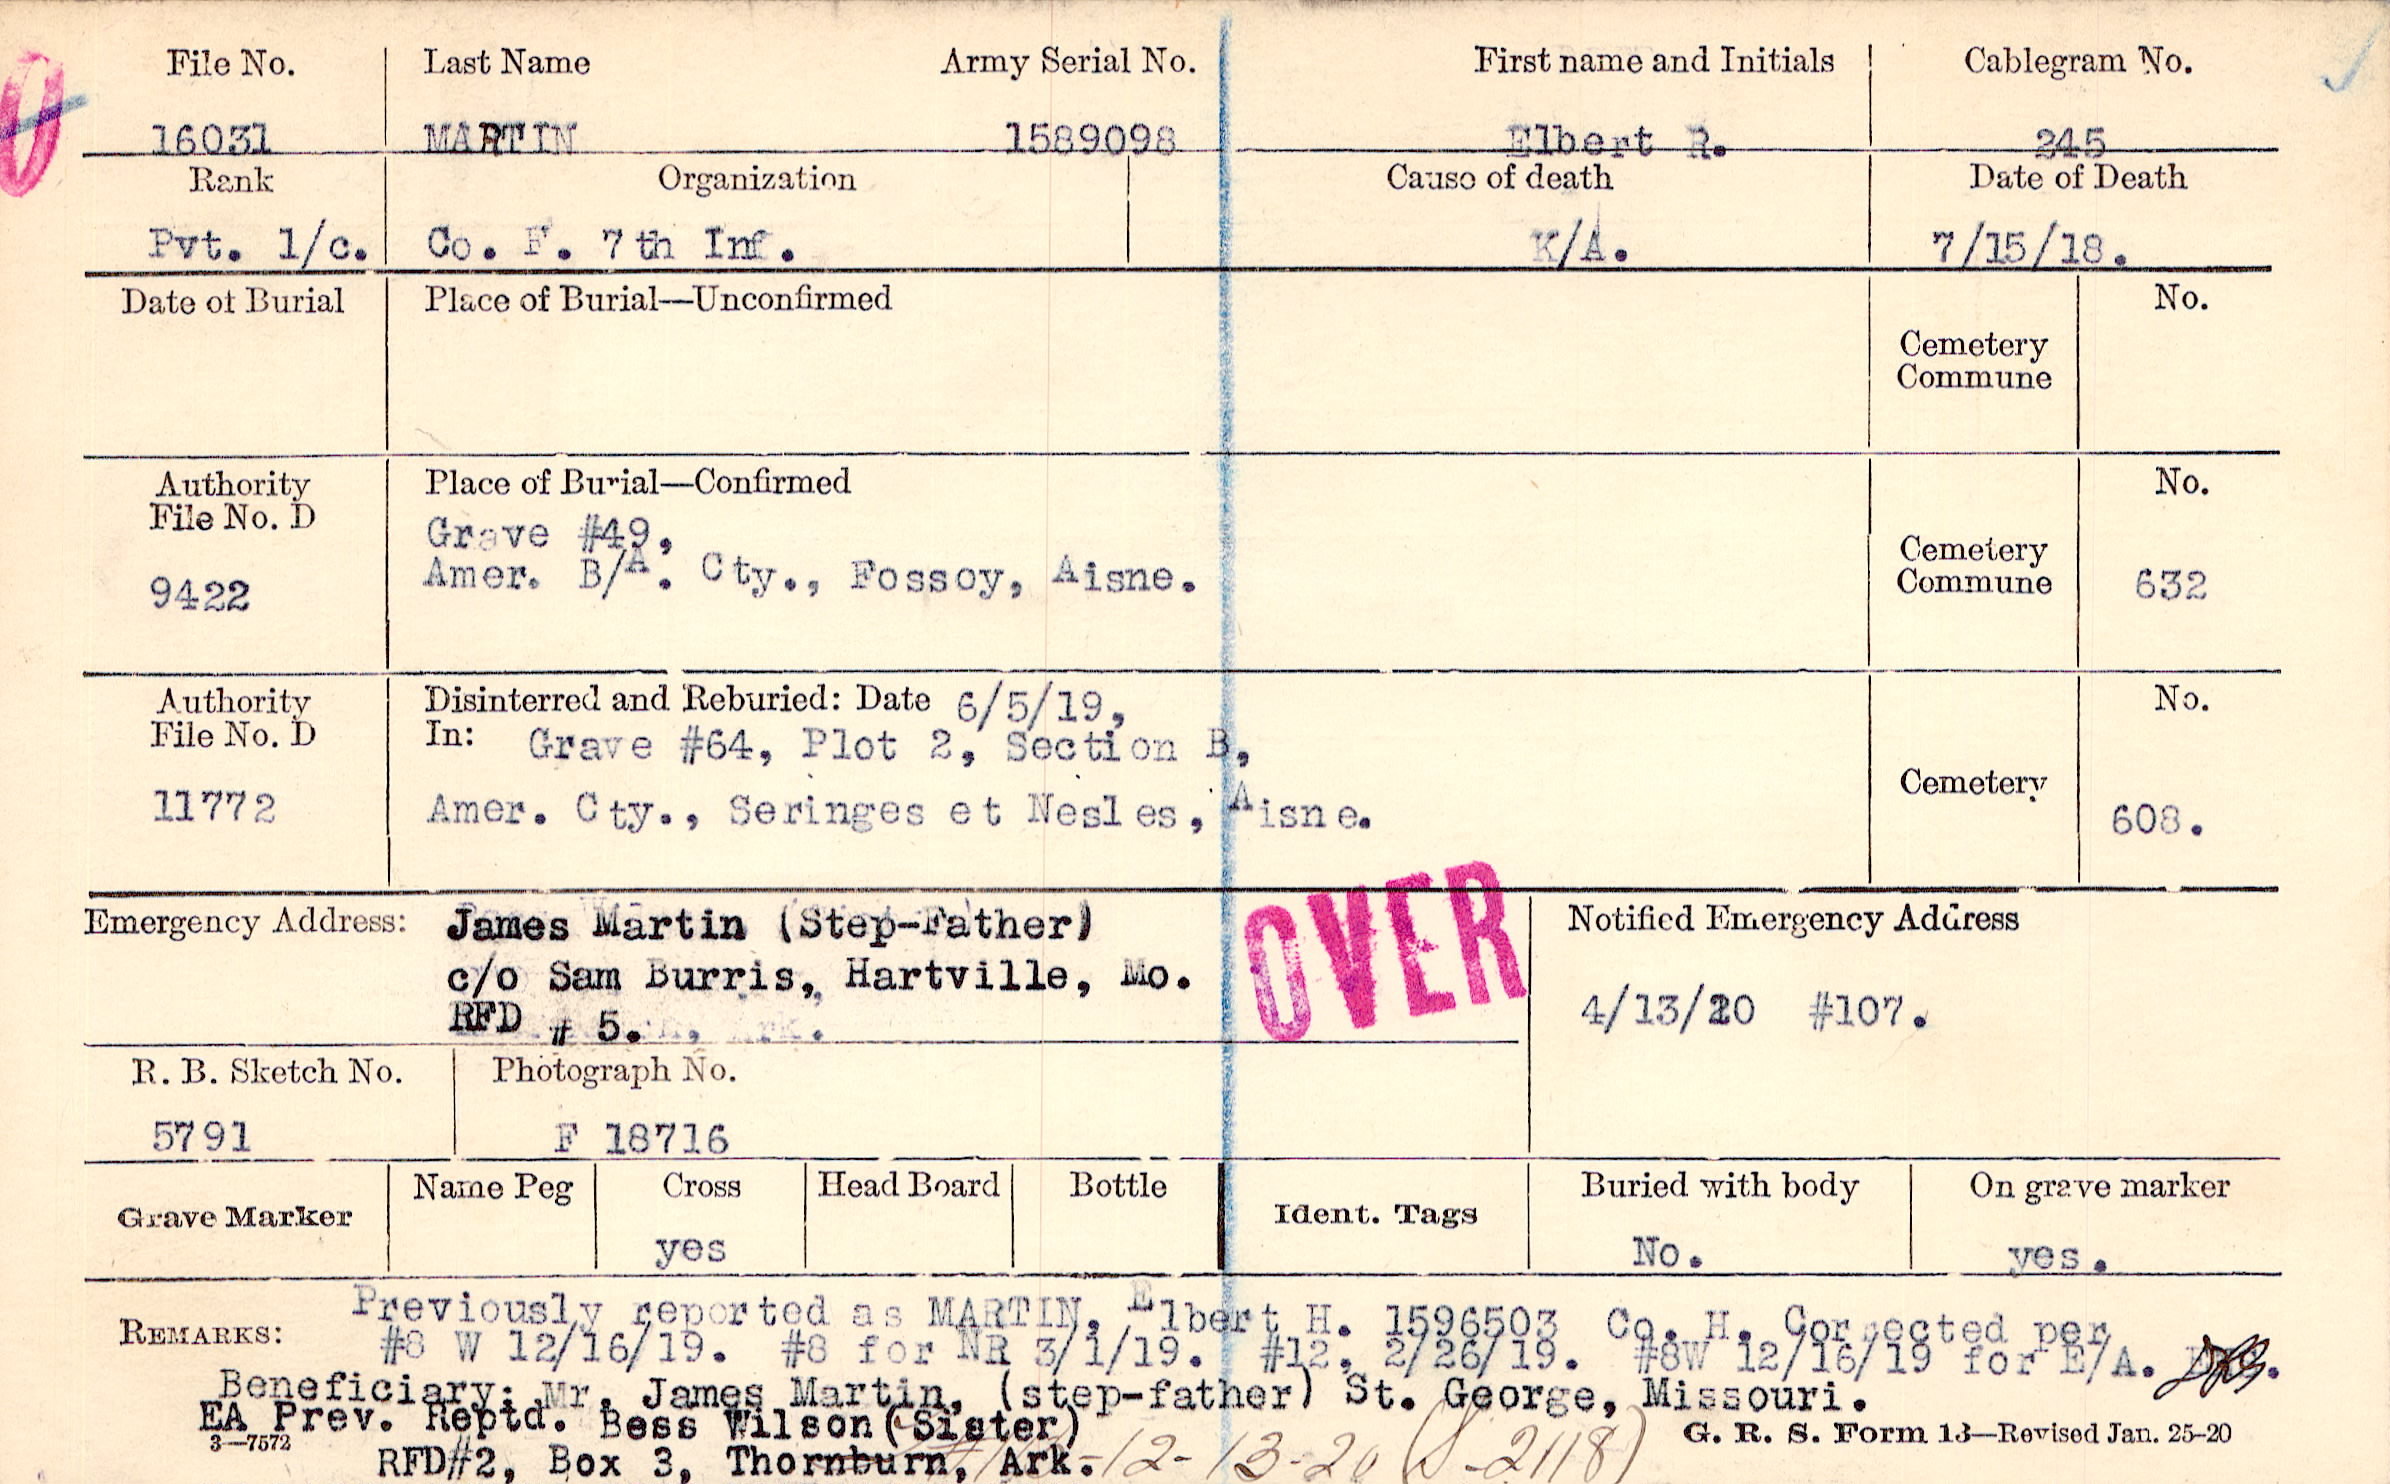 File No. Last Name Army Serial No. First name and Initials Cablegram No.
16031 MARTIN 1589098 Elbert R. 245
Rank Organization Cause of death Date of Death
Pvt. 1/c. Co. F. 7th Inf. K/A. 7/15/18.
Date of Burial Place of Burial—Unconfirmed No.
Cemetery
Commune
Authority Place of Burial—Confirmed No.
File No. D
Grave #49,
Amer. B/A. Cty., Fossoy, Aisne.
9422 Cemetery
Commune 632
Authority Disinterred and Reburied: Date 6/5/19, No.
File No. D In: Grave #64, Plot 2, Section B,
Cemetery
11772 Amer. Cty., Seringes et Nesles, Aisne. 608.
OVER
Emergency Address: James Martin (Step-Father) Notified Emergency Address
c/o Sam Burris, Hartville, Mo.
RFD # 5. 4/13/20 #107.
R. B. Sketch No. Photograph No.
5791 F 18716
Grave Marker Name Peg Cross Head Board Bottle Ident. Tags Buried with body On grave marker
yes No. yes.
REMARKS: Previously reported as MARTIN, Elbert H. 1596503 Co. H. Corrected per
#8 W 12/16/19. #8 for NR 3/1/19. #12, 2/26/19. #8W 12/16/19 for E/A.
Beneficiary: Mr. James Martin, (step-father) St. George, Missouri.
EA Prev. Reptd. Bess Wilson (Sister)
3—7572 G. R. S. Form 13—Revised Jan. 25-20
RFD#2, Box 3, Thornburn, Ark. -12-13-20 (S-2118)